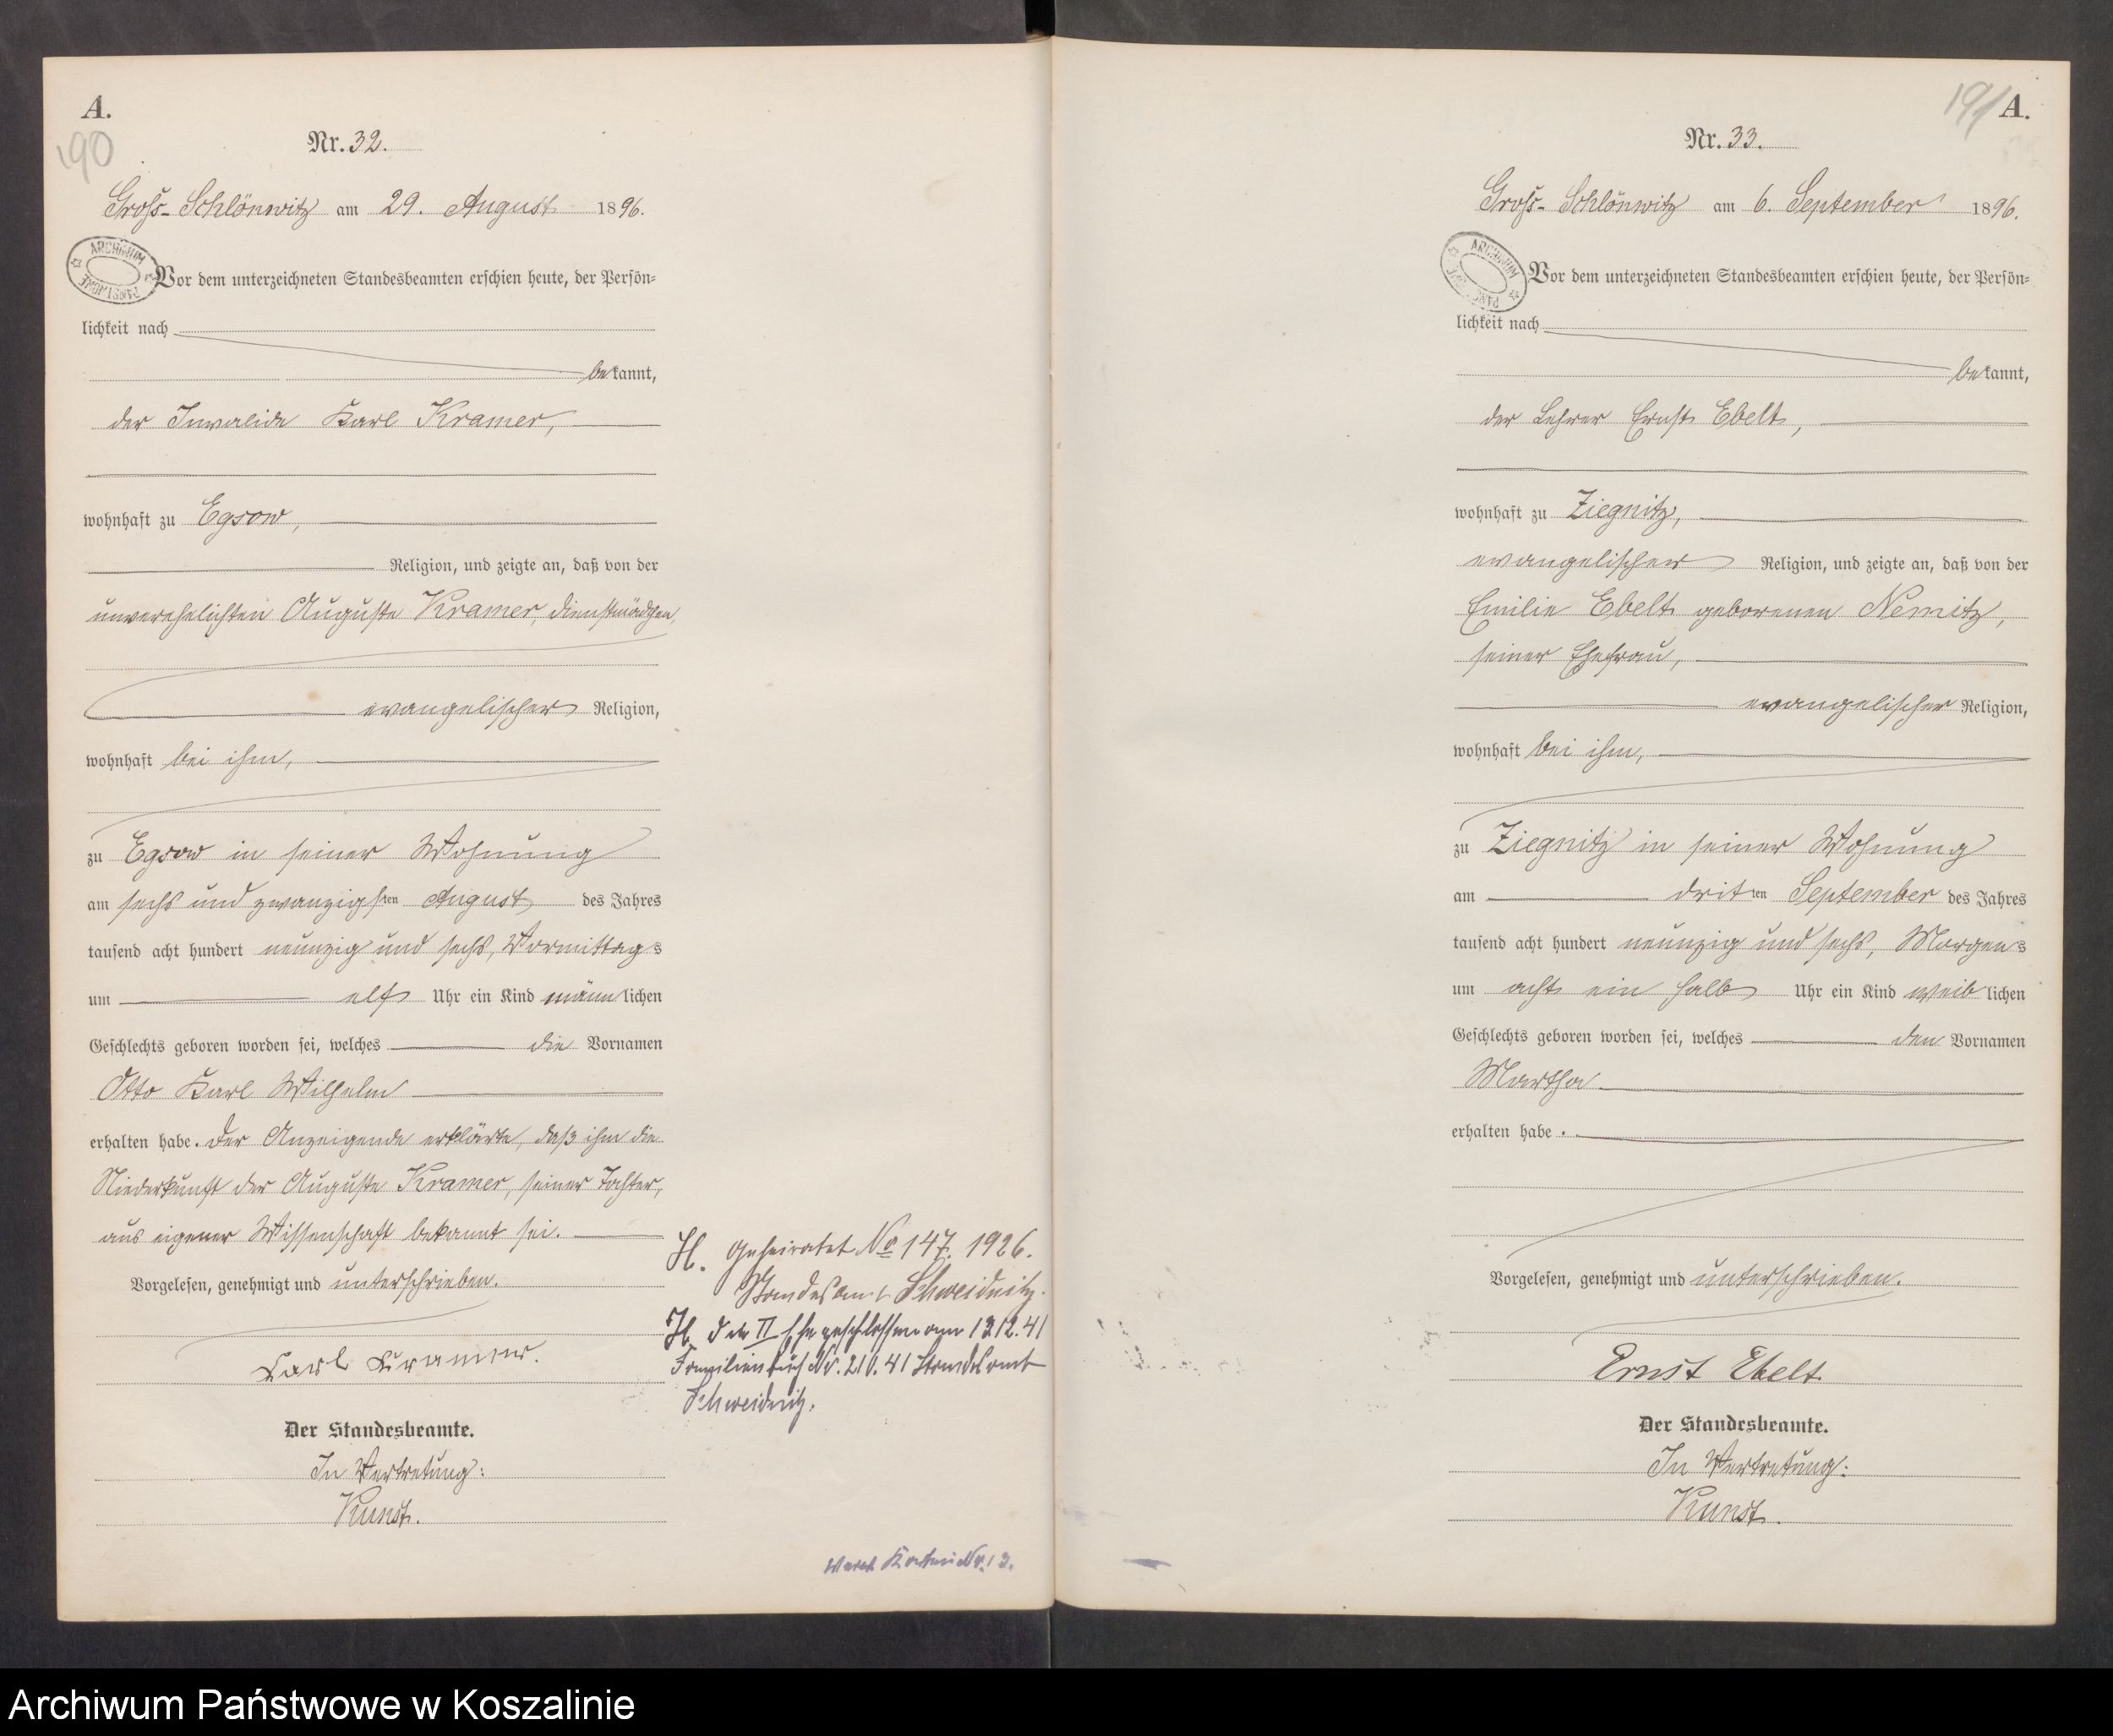 A.
190
Nr. 32.
Groß-Schlönwitz am 29. August 1896.
ARCHIWUM PAŃSTWOWE
Vor dem unterzeichneten Standesbeamten erschien heute, der Persön=
lichkeit nach
bekannt,
der Invalide Karl Kramer,
wohnhaft zu Egsow,
Religion, und zeigte an, daß von der
unverehelichten Auguste Kramer, Dienstmädchen,
evangelischer Religion,
wohnhaft bei ihm,
zu Egsow in seiner Wohnung
am sechs und zwanzigsten August des Jahres
tausend acht hundert neunzig und sechs, Vormittags
um elf Uhr ein Kind männlichen
Geschlechts geboren worden sei, welches die Vornamen
Otto Karl Wilhelm
erhalten habe. Der Anzeigende erklärte, daß ihm die
Niederkunft der Auguste Kramer, seiner Tochter,
aus eigener Wissenschaft bekannt sei.
Vorgelesen, genehmigt und unterschrieben.
Carl Kramer.
Der Standesbeamte.
In Vertretung:
Kunst.
H. Geheiratet No 147. 1926.
Standesamt Schweidnitz.
H. d. II Ehe geschlossen am 1312.41
Familienbuch Nr. 210.41 Standesamt
Schweidnitz.
Nr. 13.
191 A.
Nr. 33.
Groß-Schlönwitz am 6. September 1896.
ARCHIWUM PAŃSTWOWE
Vor dem unterzeichneten Standesbeamten erschien heute, der Persön=
lichkeit nach
bekannt,
der Lehrer Ernst Ebelt,
wohnhaft zu Ziegnitz,
evangelischer Religion, und zeigte an, daß von der
Emilie Ebelt geborenen Nemitz,
seiner Ehefrau,
evangelischer Religion,
wohnhaft bei ihm,
zu Ziegnitz in seiner Wohnung
am dritten September des Jahres
tausend acht hundert neunzig und sechs, Morgens
um acht ein halb Uhr ein Kind weiblichen
Geschlechts geboren worden sei, welches den Vornamen
Martha
erhalten habe.
Vorgelesen, genehmigt und unterschrieben.
Ernst Ebelt
Der Standesbeamte.
In Vertretung:
Kunst.
Archiwum Państwowe w Koszalinie